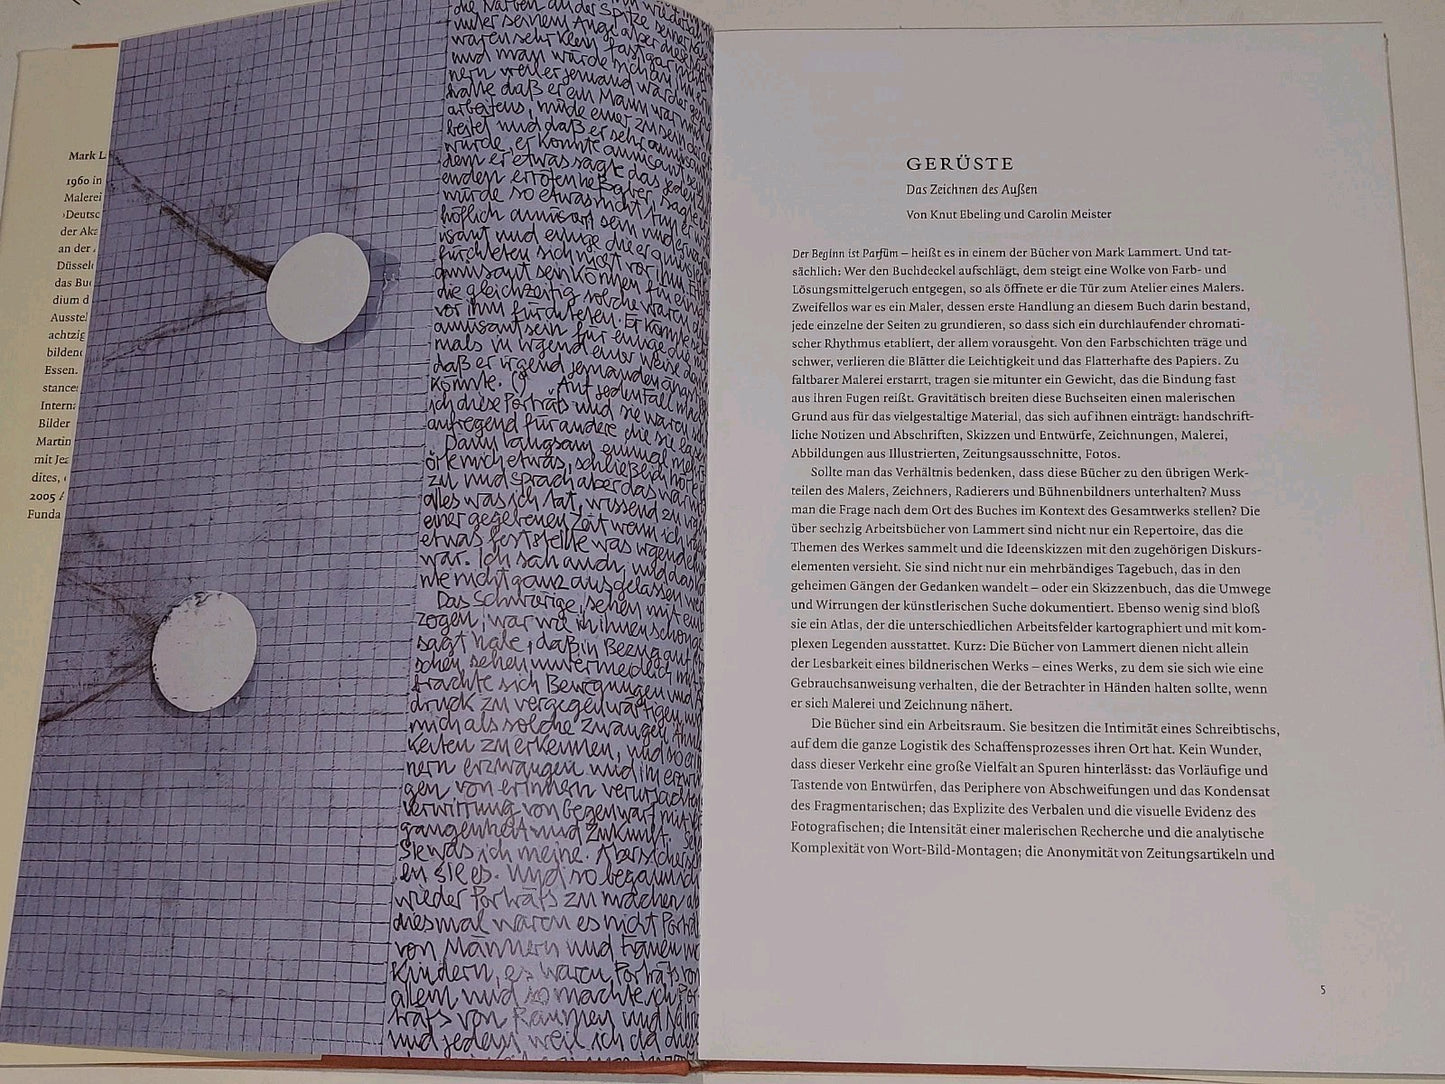 Mark L
1960 in
Malerei
›Deutsc
der Aka
an der
Düsseld
das Buc
dium d
Ausstel
achtzig
bildend
Essen.
stances
Interna
Bilder
Martin
mit Jea
dites,
2005 A
Funda
die Narben an der Spitze seiner
unter seinem Auge aber diese
waren sehr klein fast gar
und man würde sich an ihn
nern weil er jemand war der
hatte daß er ein Mann war
arbeitens, müde einer zu sein
bestel und daß er sehr amüsant
würde er könnte amüsant sein
dem er etwas sagte das jeden
würde so etwas nicht tun er
höflich amüsant sein und er
üsant und einige die er
fürchteten sich nicht vor ihm
amüsant sein können für ein
die gleichzeitig solche waren die
vor ihm fürchteten. Er könnte
amüsant sein für einige die
mals in irgend einer Weise
daß er irgend jemanden ängst
könnte. () „Auf jeden Fall mach
ich diese Porträts und sie waren
aufregend für andere die sie
Dann langsam einmal mehr
örte mich etwas, schließlich hörte
zu und sprach aber das war
alles was ich tat, wissend zu
einer gegebenen Zeit wenn ich
etwas feststellte was irgend
war. Ich sah auch, und das
nie nicht ganz ausgelassen
Das Schwierige, sehen mit ein
zogen, war wo in ihnen schon
sagt habe, daß in Bezug auf
schen, sehen unvermeidlich mit
brachte sich Bewegungen und
druck zu vergegenwärtigen und
mich als solche zwangen Ähn
keiten zu erkennen, und so
nern erzwangen und im erzw
gen von erinnern verursachten
Verwirrung von Gegenwart mit
gangenheit und Zukunft. Sehen
Sie was ich meine. Aber sicher
en sie es. Und so begann ich
wieder Porträts zu machen
diesmal waren es nicht Porträ
von Männern und Frauen und
Kindern, es waren Porträts von
allem und so machte ich Por
träts von Räumen und Nahru
und jedem weil ich da diese
GERÜSTE
Das Zeichnen des Außen
Von Knut Ebeling und Carolin Meister
Der Beginn ist Parfüm – heißt es in einem der Bücher von Mark Lammert. Und tat-
sächlich: Wer den Buchdeckel aufschlägt, dem steigt eine Wolke von Farb- und
Lösungsmittelgeruch entgegen, so als öffnete er die Tür zum Atelier eines Malers.
Zweifellos war es ein Maler, dessen erste Handlung an diesem Buch darin bestand,
jede einzelne der Seiten zu grundieren, so dass sich ein durchlaufender chromati-
scher Rhythmus etabliert, der allem vorausgeht. Von den Farbschichten träge und
schwer, verlieren die Blätter die Leichtigkeit und das Flatterhafte des Papiers. Zu
faltbarer Malerei erstarrt, tragen sie mitunter ein Gewicht, das die Bindung fast
aus ihren Fugen reißt. Gravitätisch breiten diese Buchseiten einen malerischen
Grund aus für das vielgestaltige Material, das sich auf ihnen einträgt: handschrift-
liche Notizen und Abschriften, Skizzen und Entwürfe, Zeichnungen, Malerei,
Abbildungen aus Illustrierten, Zeitungsausschnitte, Fotos.
Sollte man das Verhältnis bedenken, dass diese Bücher zu den übrigen Werk-
teilen des Malers, Zeichners, Radierers und Bühnenbildners unterhalten? Muss
man die Frage nach dem Ort des Buches im Kontext des Gesamtwerks stellen? Die
über sechzig Arbeitsbücher von Lammert sind nicht nur ein Repertoire, das die
Themen des Werkes sammelt und die Ideenskizzen mit den zugehörigen Diskurs-
elementen versieht. Sie sind nicht nur ein mehrbändiges Tagebuch, das in den
geheimen Gängen der Gedanken wandelt – oder ein Skizzenbuch, das die Umwege
und Wirrungen der künstlerischen Suche dokumentiert. Ebenso wenig sind bloß
sie ein Atlas, der die unterschiedlichen Arbeitsfelder kartographiert und mit kom-
plexen Legenden ausstattet. Kurz: Die Bücher von Lammert dienen nicht allein
der Lesbarkeit eines bildnerischen Werks – eines Werks, zu dem sie sich wie eine
Gebrauchsanweisung verhalten, die der Betrachter in Händen halten sollte, wenn
er sich Malerei und Zeichnung nähert.
Die Bücher sind ein Arbeitsraum. Sie besitzen die Intimität eines Schreibtischs,
auf dem die ganze Logistik des Schaffensprozesses ihren Ort hat. Kein Wunder,
dass dieser Verkehr eine große Vielfalt an Spuren hinterlässt: das Vorläufige und
Tastende von Entwürfen, das Periphere von Abschweifungen und das Kondensat
des Fragmentarischen; das Explizite des Verbalen und die visuelle Evidenz des
Fotografischen; die Intensität einer malerischen Recherche und die analytische
Komplexität von Wort-Bild-Montagen; die Anonymität von Zeitungsartikeln und
5